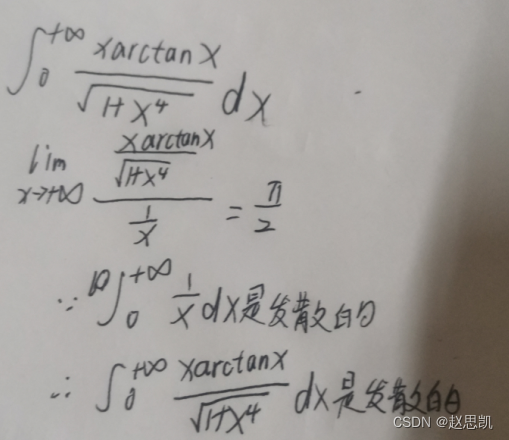 ∫₀^{+∞} xarctanx/√(1+x⁴) dx
lim_{x→+∞} (xarctanx/√(1+x⁴))/(1/x) = π/2
∵ ∫₀^{+∞} 1/x dx是发散的
∴ ∫₀^{+∞} xarctanx/√(1+x⁴) dx是发散的
CSDN @赵思凯